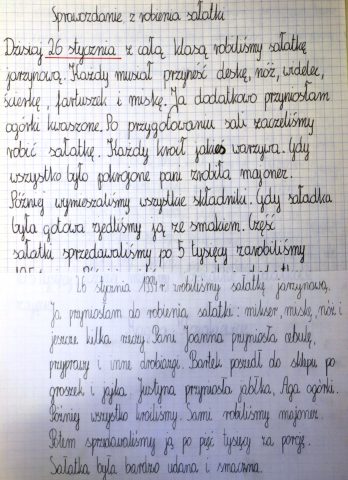 Sprawozdanie z robienia sałatki
Dzisiaj 26 stycznia z całą klasą robiliśmy sałatkę
jarzynową. Każdy musiał przynieść deskę, nóż, widelec,
ścierkę, fartuszek i miskę. Ja dodatkowo przyniosłam
ogórki kwaszone. Po przygotowaniu sali zaczęliśmy
robić sałatkę. Każdy kroił jakieś warzywa. Gdy
wszystko było pokrojone pani zrobiła majonez.
Później wymieszaliśmy wszystkie składniki. Gdy saładka
była gotowa zjedliśmy ją ze smakiem. Część
sałatki sprzedawaliśmy po 5 tysięcy zarobiliśmy
26 stycznia 1994 r. zrobiliśmy sałatkę jarzynową.
Ja przyniosłam do robienia sałatki: mikser, miskę, nóż i
jeszcze kilka rzeczy. Pani Joanna przyniosła cebulę,
przyprawy i inne drobiazgi. Bartek poszedł do sklepu po
groszek i jajka. Justyna przyniosła jabłka, Aga ogórki.
Później wszystko kroiliśmy. Sami robiliśmy majonez.
Potem sprzedawaliśmy ją po pięć tysięcy za porcję.
Sałatka była bardzo udana i smaczna.